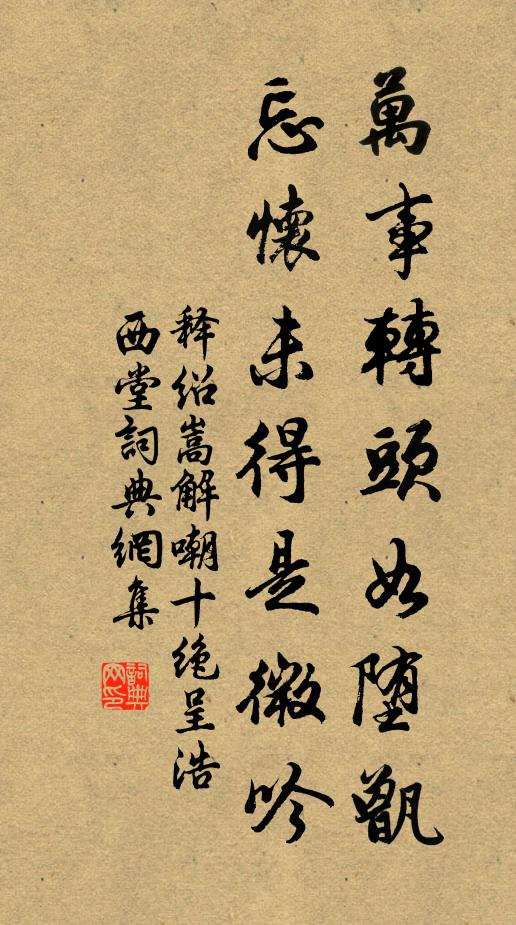 萬事轉頭如堕甑
忘懷未得是微吟
释绍嵩解嘲十绝呈浩
西堂詞典網集
詞典网印